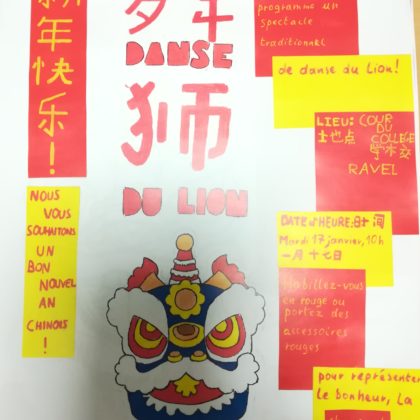 新年快乐！
NOUS
VOUS
SOUHAITONS
UN
BON
NOUVEL
AN
CHINOIS !
DANSE
狮
DU LION
programme un
spectacle
traditionnel
de danse du Lion !
LIEU: COUR
地点 DU
COLLEGE
学校
RAVEL
DATE et HEURE: 时间
Mardi 17 janvier, 10h
一月十七日
Habillez-vous
en rouge ou
portez des
accessoires
rouges
pour représenter
le bonheur, La